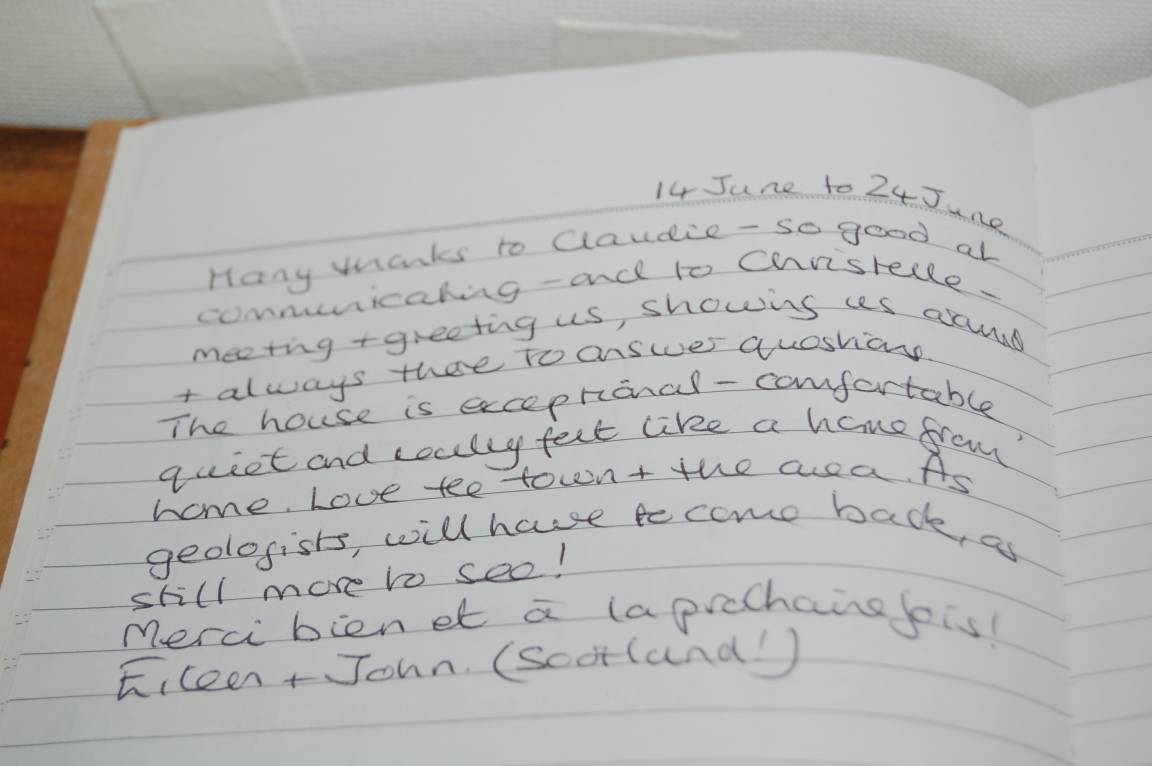 14 June to 24 June
Many thanks to Claudie - so good at
communicating - and to Christelle -
meeting + greeting us, showing us around
+ always there to answer questions.
The house is exceptional - comfortable,
quiet and really felt like a home from
home. Love the town + the area. As
geologists, will have to come back, as
still more to see!
Merci bien et à la prochaine fois!
Eileen + John. (Scotland!)